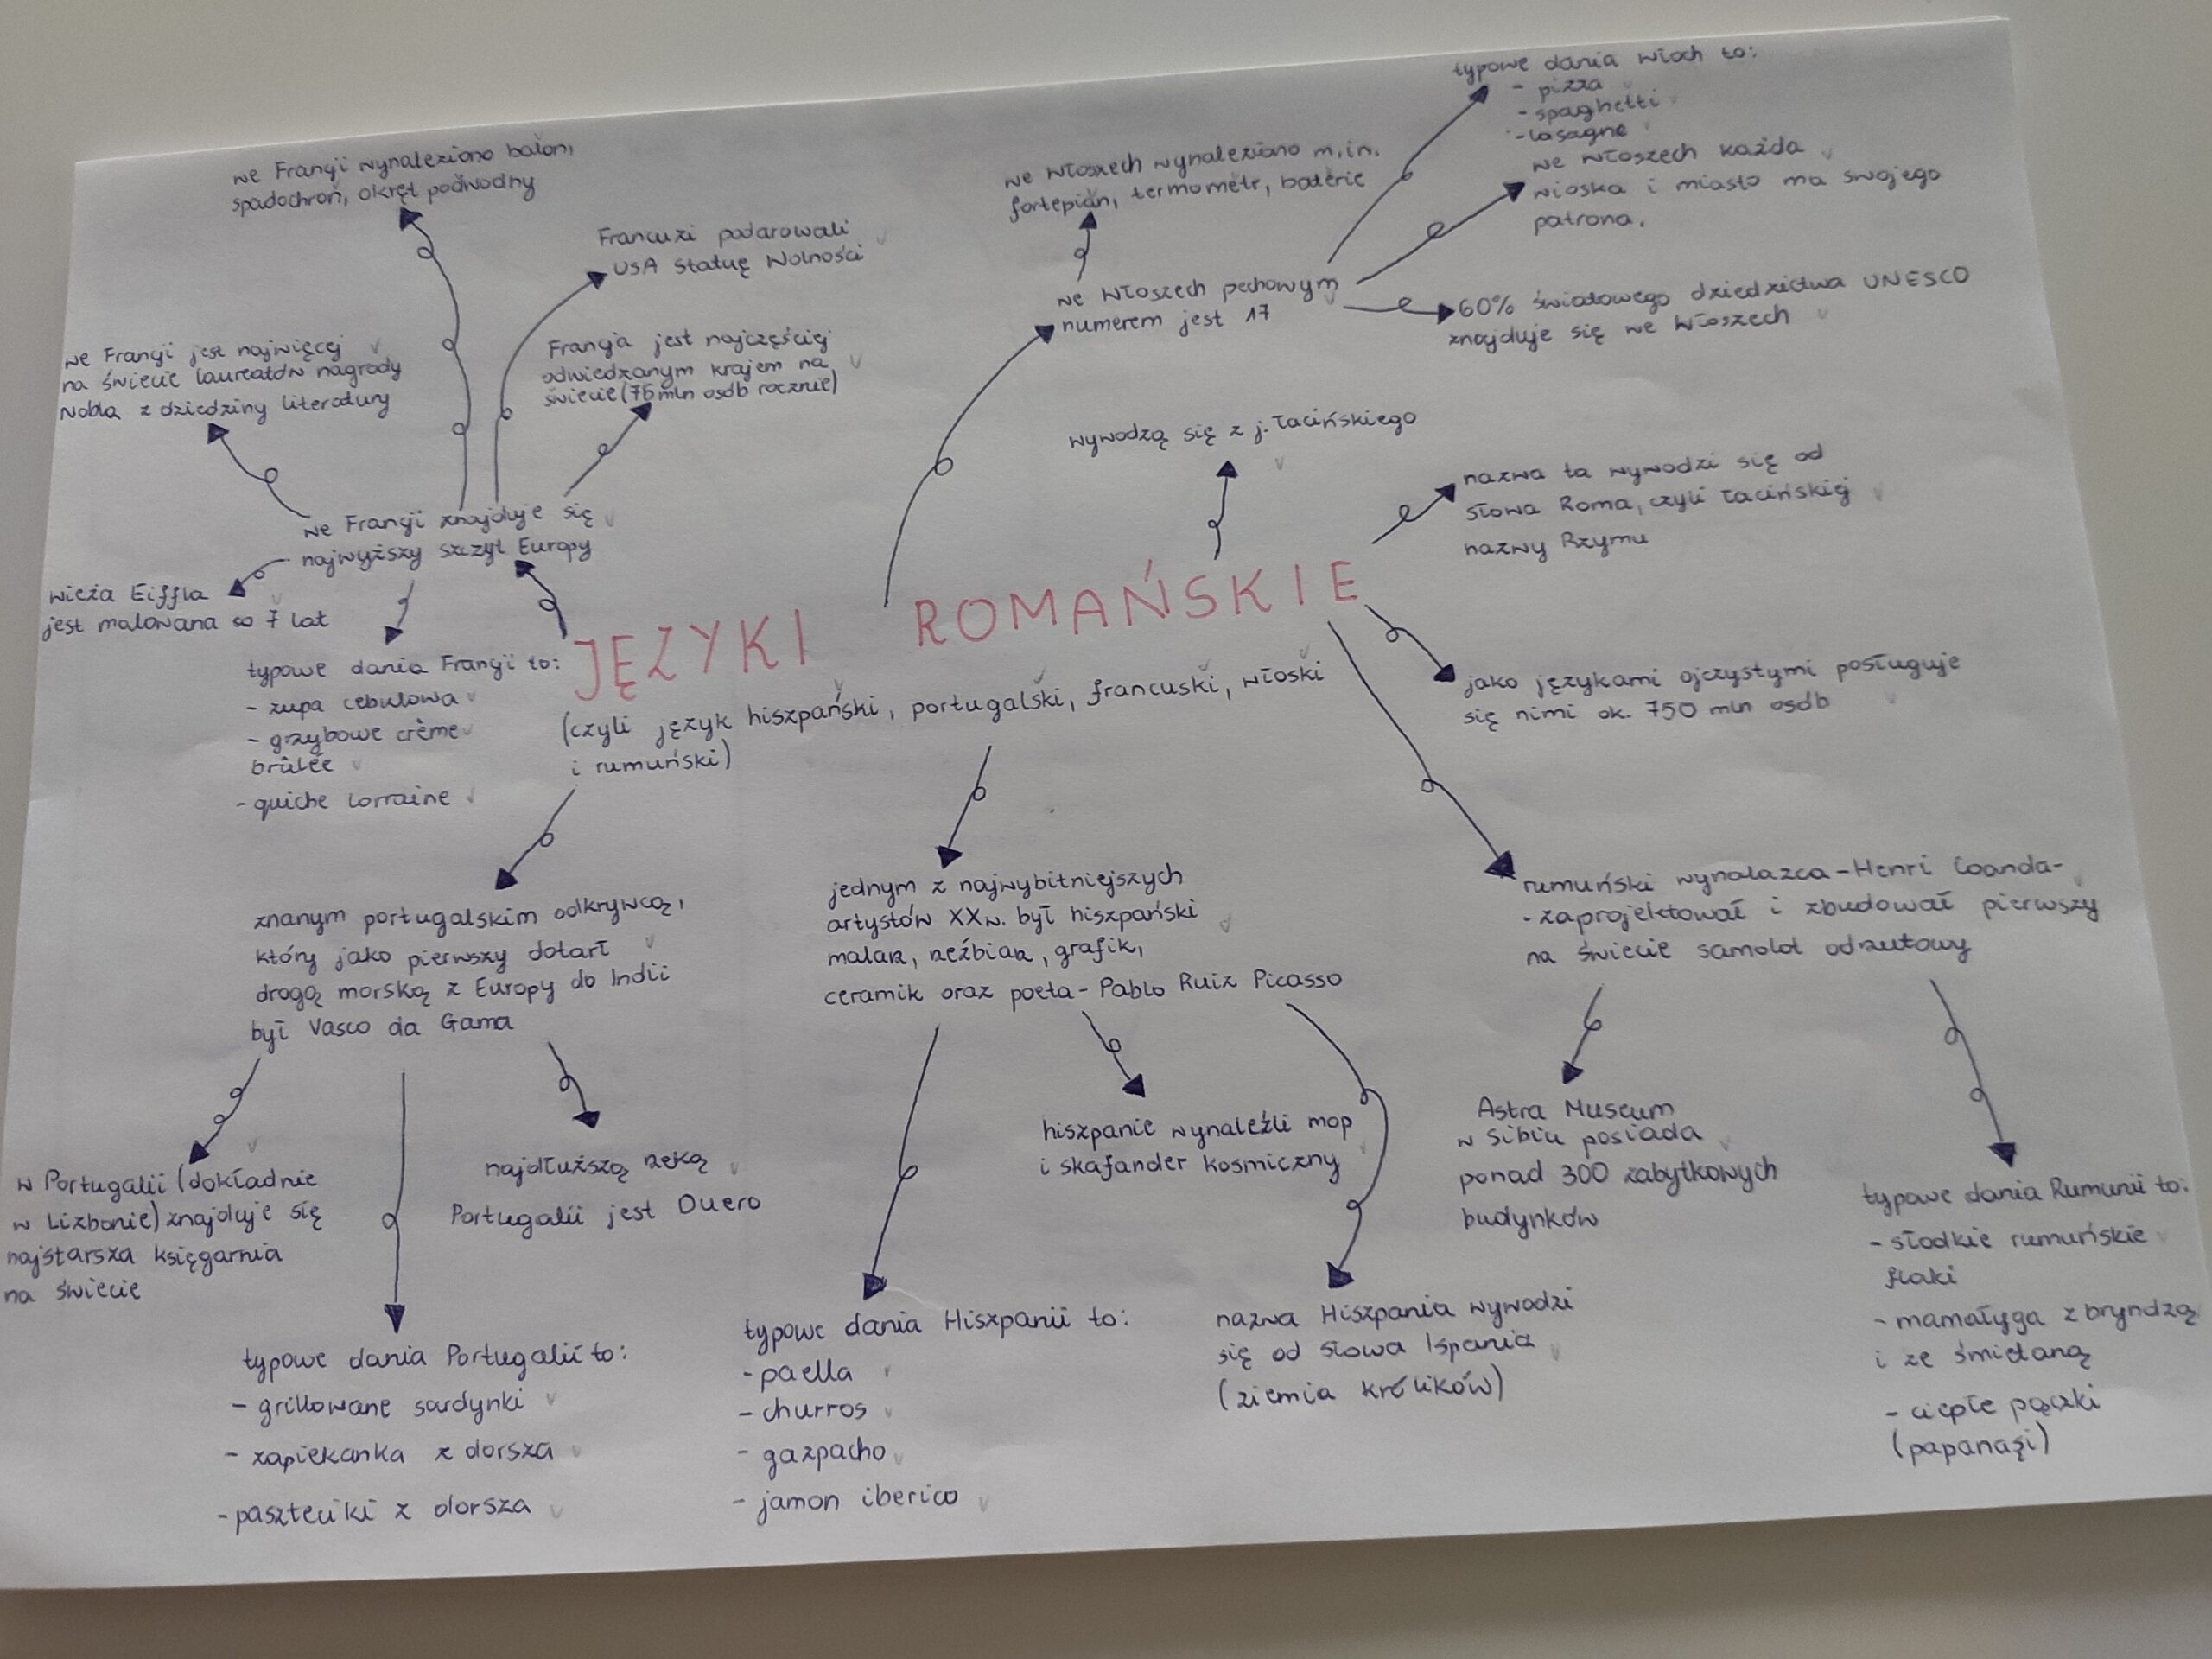 we Francji wynaleziono balon,
spadochron, okręt podwodny
Francuzi podarowali
USA Statuę Wolności
we Francji jest najwięcej
na świecie laureatów nagrody
Nobla z dziedziny literatury
Francja jest najczęściej
odwiedzanym krajem na
świecie (75 mln osób rocznie)
we Francji znajduje się
najwyższy szczyt Europy
wieża Eiffla
jest malowana co 7 lat
typowe dania Francji to:
- zupa cebulowa
- grzybowe crème
brûlée
- quiche lorraine
we Włoszech wynaleziono m.in.
fortepian, termometr, baterie
typowe dania Włoch to:
- pizza
- spaghetti
- lasagne
we Włoszech każda
wioska i miasto ma swojego
patrona.
we Włoszech pechowym
numerem jest 17
60% światowego dziedzictwa UNESCO
znajduje się we Włoszech
wywodzą się z j. łacińskiego
nazwa ta wywodzi się od
słowa Roma, czyli łacińskiej
nazwy Rzymu
JĘZYKI ROMAŃSKIE
(czyli język hiszpański, portugalski, francuski, włoski
i rumuński)
jako językami ojczystymi posługuje
się nimi ok. 750 mln osób
znanym portugalskim odkrywcą,
który jako pierwszy dotarł
drogą morską z Europy do Indii
był Vasco da Gama
jednym z najwybitniejszych
artystów XXw. był hiszpański
malarz, rzeźbiarz, grafik,
ceramik oraz poeta - Pablo Ruiz Picasso
rumuński wynalazca - Henri Coanda-
- zaprojektował i zbudował pierwszy
na świecie samolot odrzutowy
w Portugalii (dokładnie
w Lizbonie) znajduje się
najstarsza księgarnia
na świecie
najdłuższą rzeką
Portugalii jest Duero
typowe dania Portugalii to:
- grillowane sardynki
- zapiekanka z dorsza
- paszteciki z dorsza
hiszpanie wynaleźli mop
i skafander kosmiczny
typowe dania Hiszpanii to:
- paella
- churros
- gazpacho
- jamon iberico
nazwa Hiszpania wywodzi
się od słowa Ispania
(ziemia królików)
Astra Museum
w Sibiu posiada
ponad 300 zabytkowych
budynków
typowe dania Rumunii to:
- słodkie rumuńskie
flaki
- mamałyga z bryndzą
i ze śmietaną
- ciepłe pączki
(papanași)